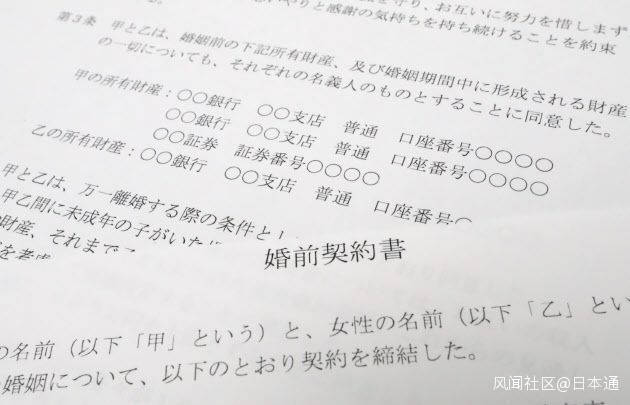 を守り、お互いに努力を惜しまず
やりと感謝の気持ちを持ち続けることを約束
第3条 甲と乙は、婚姻前の下記所有財産、及び婚姻期間中に形成される財産
の一切についても、それぞれの名義人のものとすることに同意した。
甲の所有財産：○○銀行 ○○支店 普通 口座番号○○○○
○○銀行 ○○支店 普通 口座番号○○○○
○○証券 証券番号○○○○
乙の所有財産：○○銀行 ○○支店 普通 口座番号○
甲と乙は、万一離婚する際の条件と
甲乙間に未成年の子がいた
財産、それまで
を考慮
婚前契約書
の名前（以下「甲」という）と、女性の名前（以下「乙」とい
婚姻について、以下のとおり契約を締結した。
风闻社区@日本通